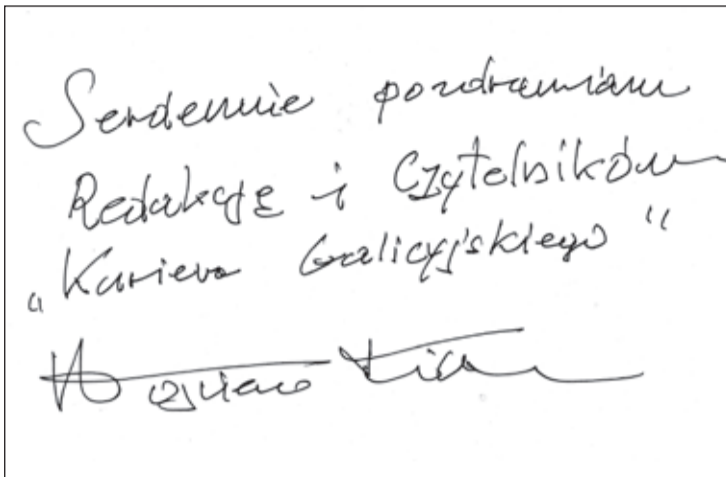 Serdecznie pozdrawiam
Redakcję i Czytelników
„Kuriera Galicyjskiego"